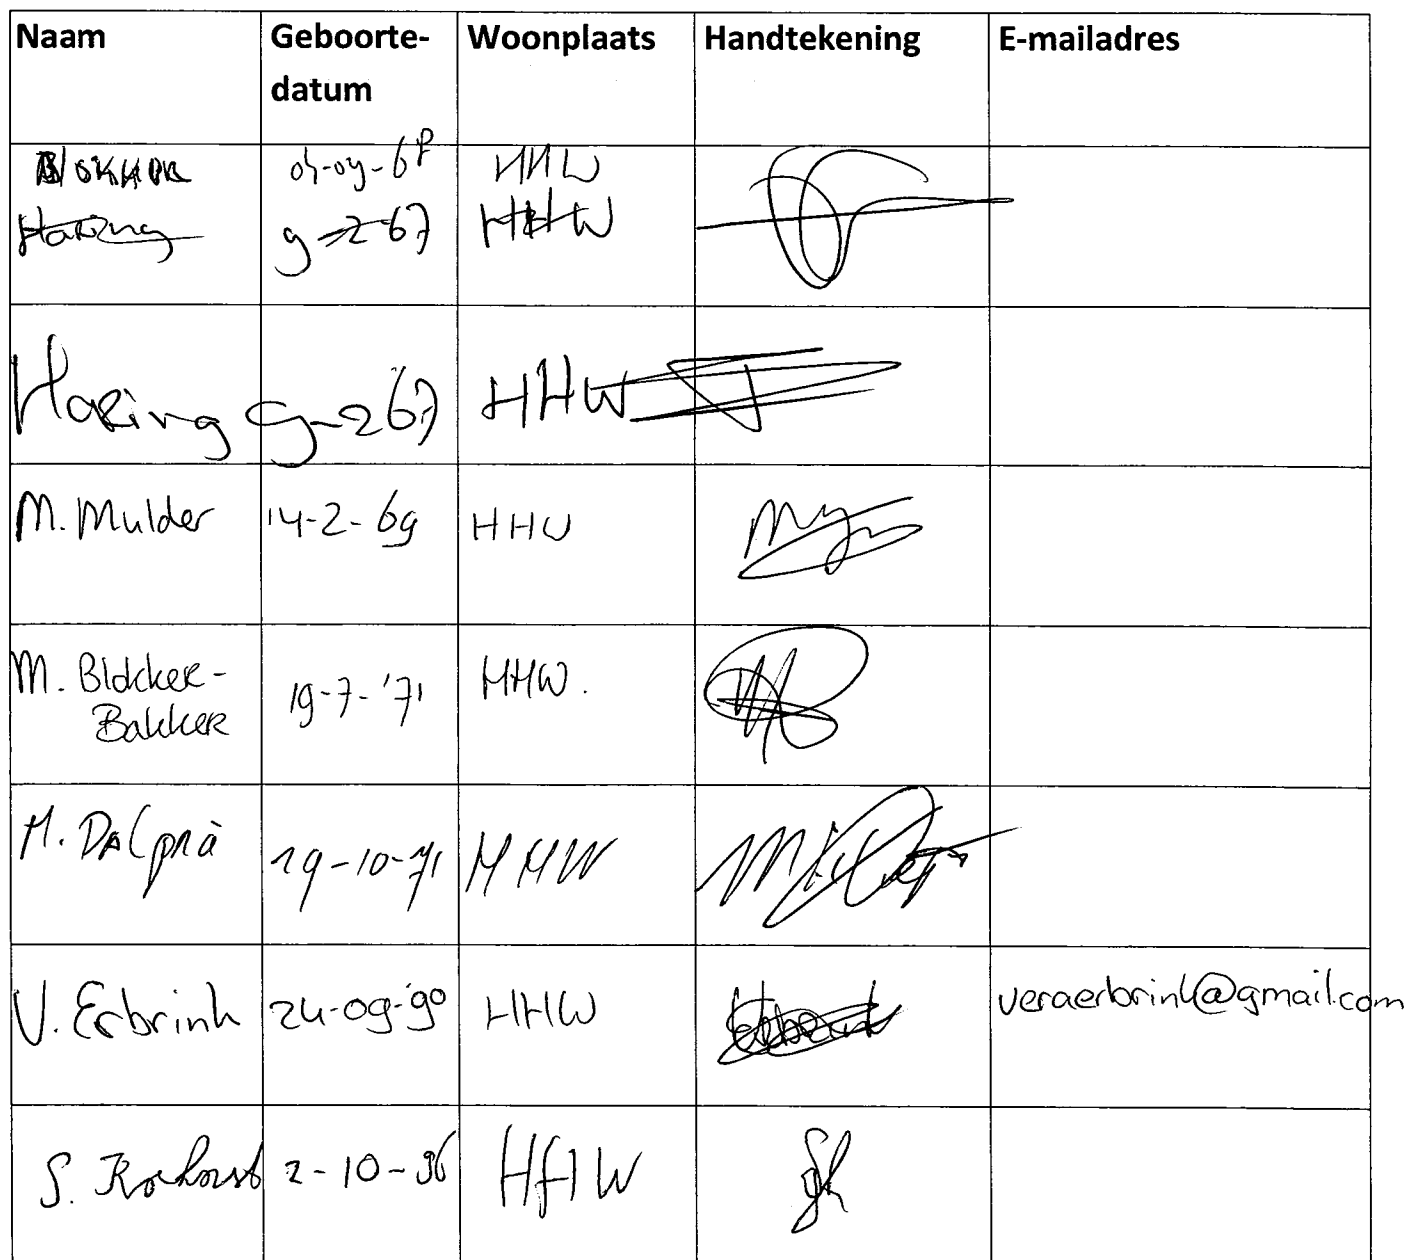 Naam Geboorte-datum Woonplaats Handtekening E-mailadres
HHW
Haring 9-2-67 HHW
Haring 9-2 67 HHW
M. Mulder 14-2-69 HHW
M. Blokker-Bakker 19-7-'71 HHW.
M. Dalprà 19-10-71 HHW
V. Erbrink 24-09-'90 HHW veraerbrink@gmail.com
S. 2-10-96 HHW